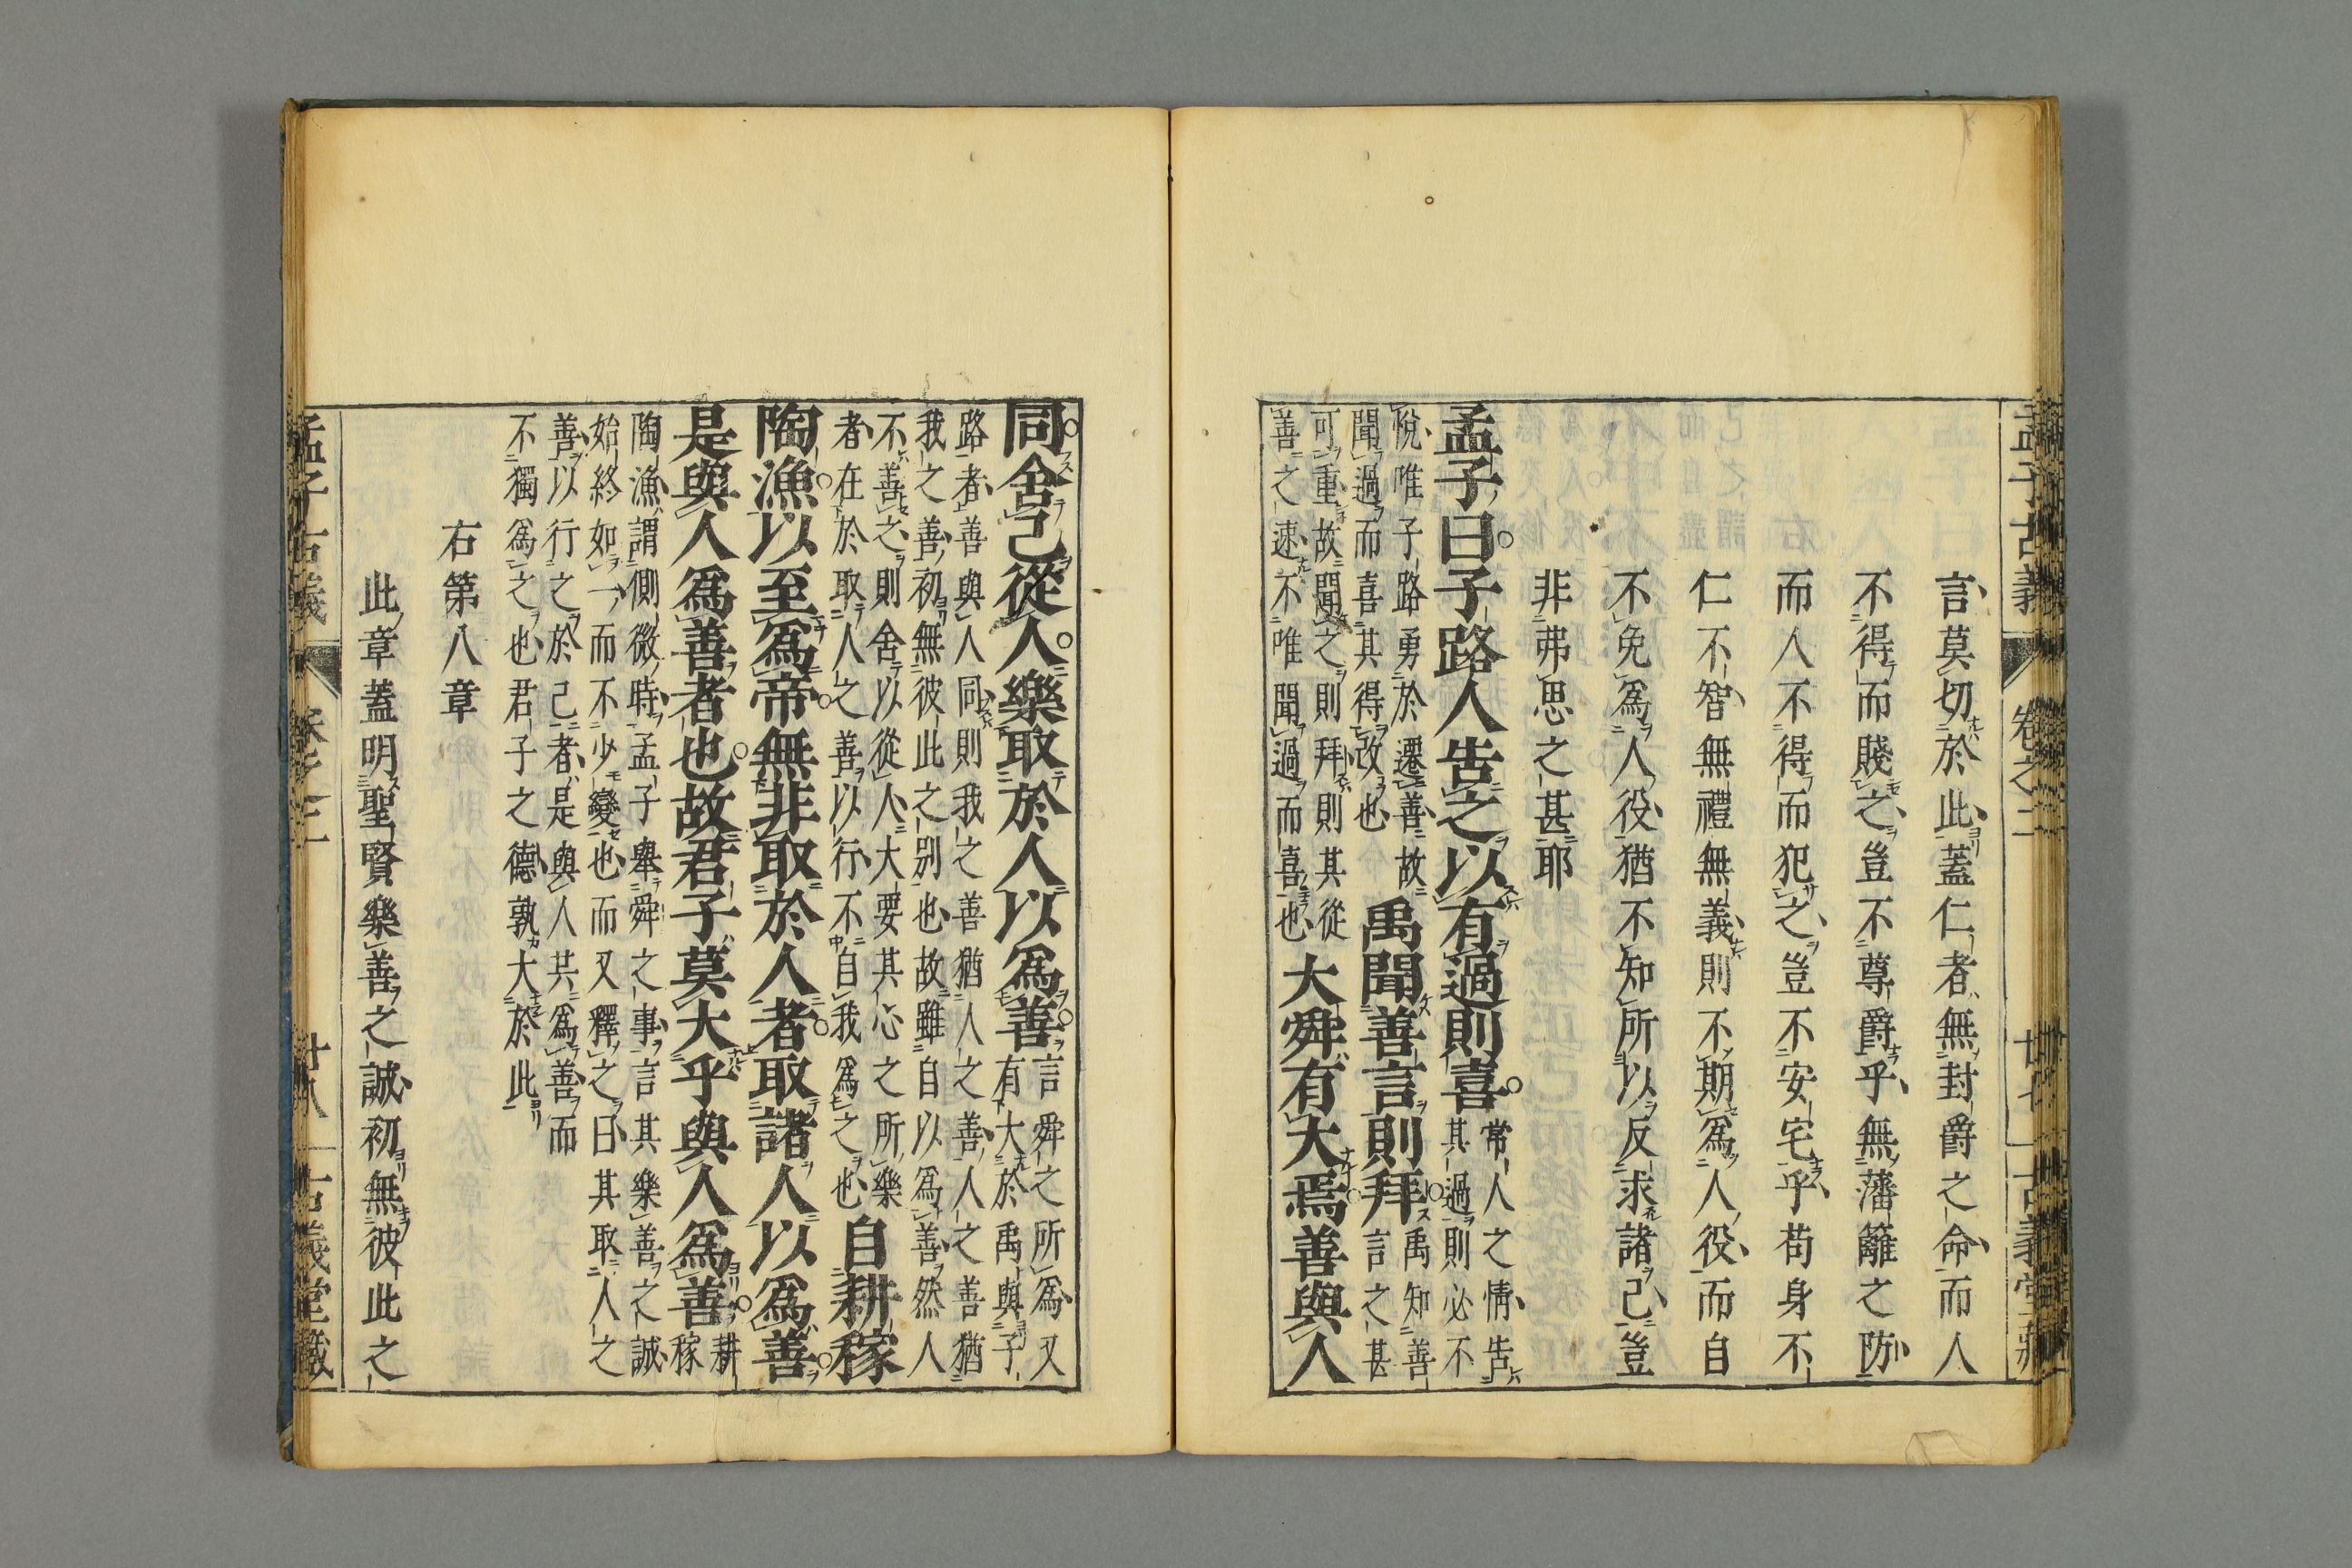 孟子古義 卷之二 廿七 古義堂藏
言莫切於此蓋仁者無封爵之命而人
不得而賤之豈不尊爵乎無藩籬之防
而人不得而犯之豈不安宅乎苟身不
仁不智無禮無義則不期爲人役而自
不免爲人役猶不知所以反求諸己豈
非弗思之甚耶
孟子曰子路人告之以有過則喜
常人之情告
其過則必不
悅唯子路勇於遷善故
聞過而喜其得改也
禹聞善言則拜
禹知善
言之甚
可重故聞之則拜則其從
善之速不唯聞過而喜也
大舜有大焉善與人
同舍己從人樂取於人以爲善
言舜之所爲又
有大於禹與子
路者善與人同則我之善猶人之善人之善猶
我之善初無彼此之別也故雖自以爲善然人
不善之則舍以從人大要其心之所樂
者在於取人之善以行不自我爲之也
自耕稼
陶漁以至爲帝無非取於人者取諸人以爲善
是與人爲善者也故君子莫大乎與人爲善
耕
稼
陶漁謂側微時孟子舉舜之事言其樂善之誠
始終如一而不少變也而又釋之曰其取人之
善以行之於己者是與人共爲善而
不獨爲之也君子之德孰大於此
右第八章
此章蓋明聖賢樂善之誠初無彼此之
孟子古義 卷之二 廿八 古義堂藏